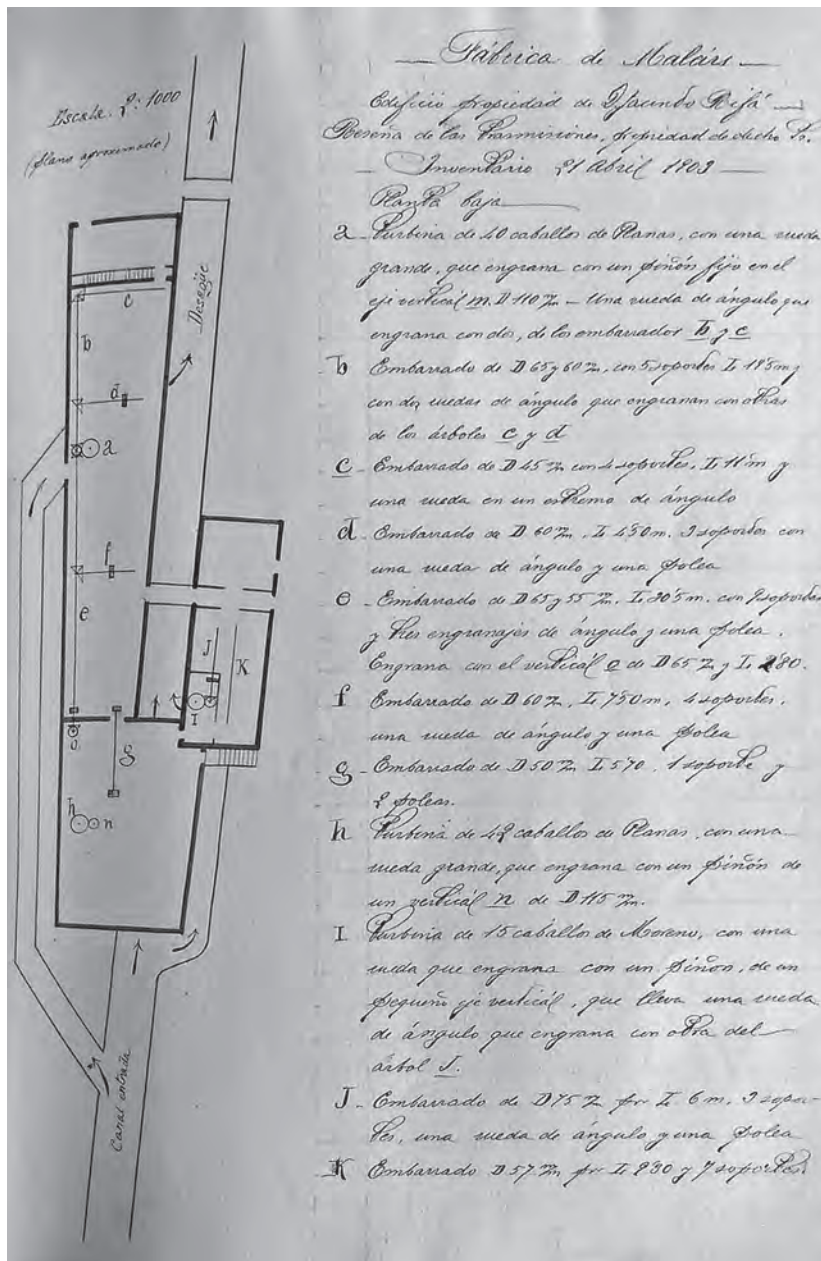 Fábrica de Malárs
Edificio propiedad de D Jacundo Rifá
Reseña de las trasmisiones, propiedad de dicho Sr.
Inventario 21 Abril 1903
Planta baja
a - Turbina de 40 caballos de Planas, con una rueda
grande, que engrana con un piñón fijo en el
eje vertical m. D 110 m/m - Una rueda de ángulo que
engrana con dos, de los embarrados b y c
b Embarrado de D 65 y 60 m/m, con 5 soportes L y
con dos ruedas de ángulo que engranan con otras
de los árboles c y d
c - Embarrado de D 45 m/m con 4 soportes, L 11 m y
una rueda en un extremo de ángulo
d - Embarrado de D 60 m/m, L 4'50 m. 3 soportes con
una rueda de ángulo y una polea
e - Embarrado de D 65 y 55 m/m. L 20'5 m. con soportes
y tres engranajes de ángulo y una polea.
Engrana con el vertical o de D 65 m/m y L
f Embarrado de D 60 m/m, L 7'50 m, 4 soportes,
una rueda de ángulo y una polea
g - Embarrado de D 50 m/m L 5'70, 1 soporte y
2 poleas.
h Turbina de 42 caballos de Planas, con una
rueda grande, que engrana con un piñón de
un vertical n de D 115 m/m.
I Turbina de 15 caballos de Moreno, con una
rueda que engrana con un piñon, de un
pequeño eje vertical, que lleva una rueda
de ángulo que engrana con otra del
árbol J.
J - Embarrado de D 75 m/m por L 6 m, 3 sopor-
tes, una rueda de ángulo y una polea
K Embarrado D 57 m/m por L 9'30 y 7 soportes.
Escala. 2: 1000
(plano aproximado)
Desagüe
c
b
d
a
f
e
J
K
I
o
g
h
n
Canal entrada